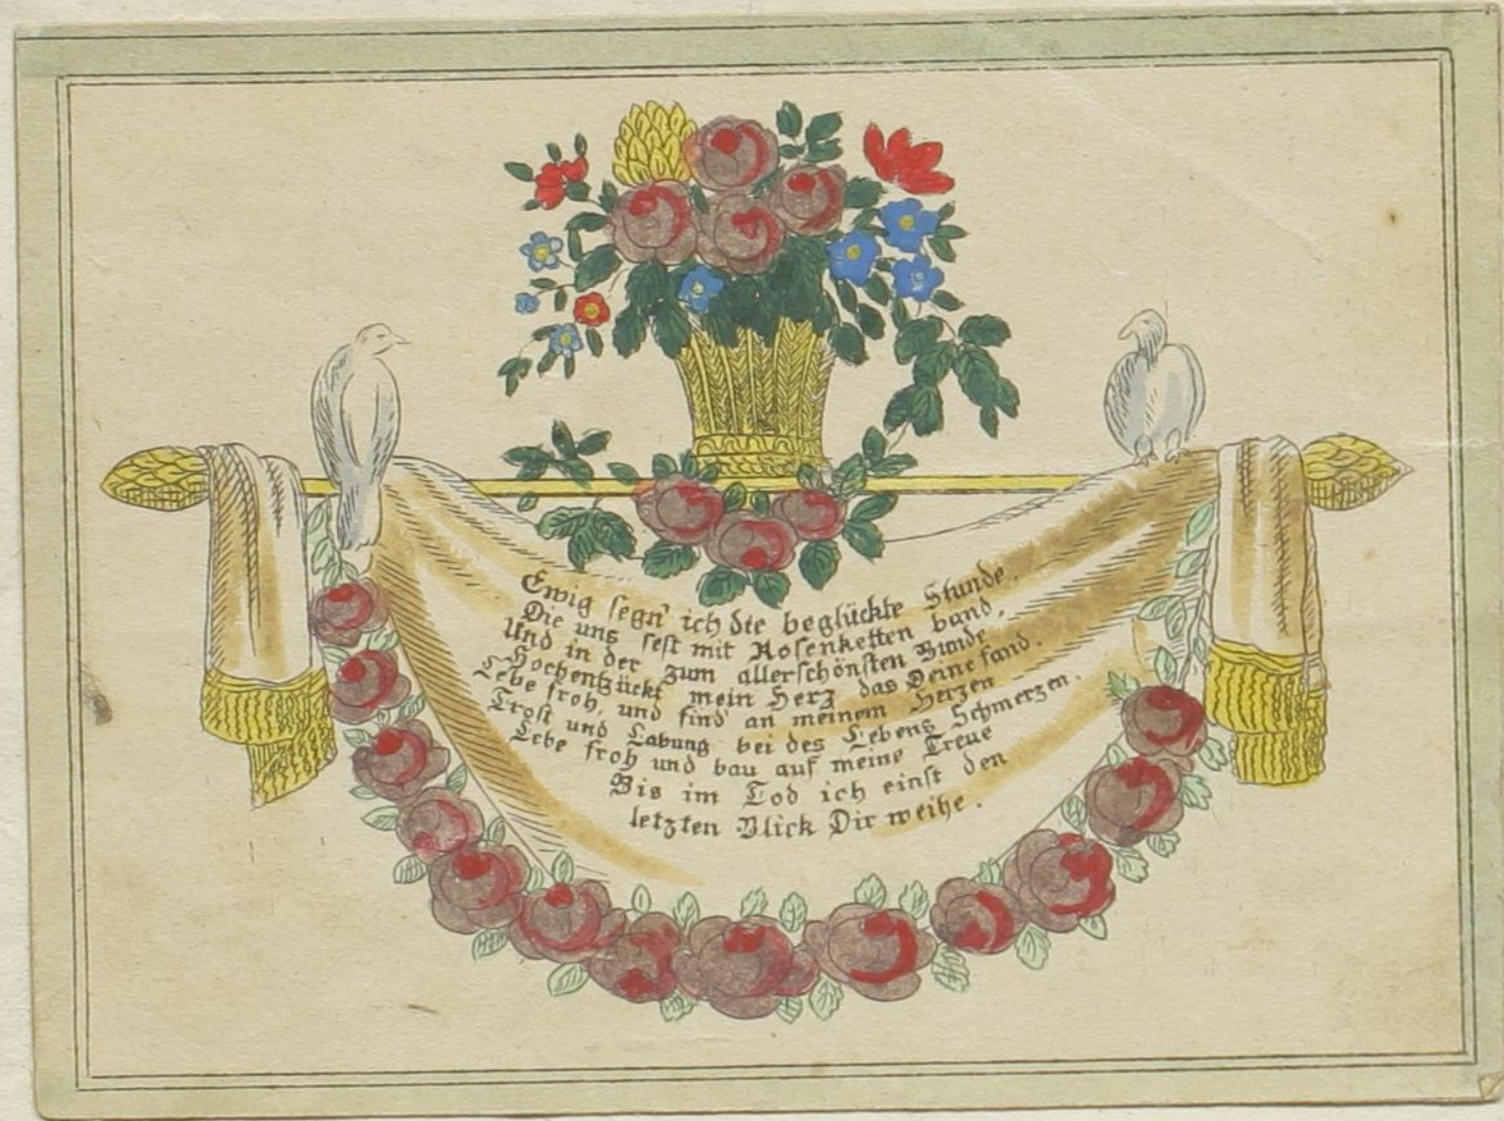 Ewig segn' ich die beglückte Stunde.
Die uns fest mit Rosenketten band,
Und in der zum allerschönsten Bunde
Hochentzückt mein Herz das Deine fand.
Lebe froh, und find' an meinem Herzen
Trost und Labung bei des Lebens Schmerzen.
Lebe froh und bau auf meine Treue
Bis im Tod ich einst den
letzten Blick Dir weihe.